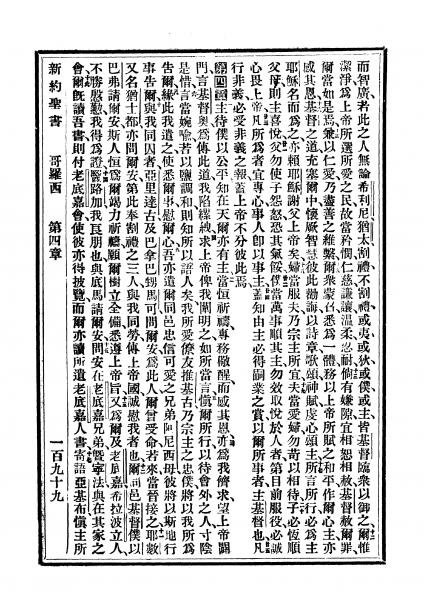 而智廣、若此之人、無論希利尼猶太、割禮不割禮、或夷、或狄、或僕、或主、皆基督臨衆以御之、爾惟
潔淨、爲上帝所選所愛之民、故當矜憫仁慈、謙讓溫柔忍耐、倘有嫌隙、宜相恕相赦、基督赦爾罪、
爾當如是焉、兼以仁愛、乃盡善之維繫、爾衆蒙召、悉爲一體、務以上帝所賦之和平、作爾心主、亦
感其恩、基督之道、充塞爾中、懷厥智慧、彼此勸誨、以詩章歌頌神賦、虔心頌主、所言所行、必爲主
耶穌名而爲之、亦賴耶穌謝父上帝矣、婦當服夫、乃宗主所宜、夫當愛婦、勿苛以相待、子必恆順
父母、則主喜悅、父勿使子怨怒、恐其氣餒、僕當萬事順其主、勿效取悅於人者、第目前服役、必誠
心畏上帝、凡所爲者、宜專心事人、卽以事主、蓋知由主必得嗣業之賞、以爾所事者、主基督也、凡
行非義、必受非義之報、蓋上帝不分彼此焉、
第四章 主待僕以公平、知在天爾亦有主、當恒祈禱、專務儆醒、而感其恩、亦爲我儕求、望上帝闢
門、言基督奧、爲傳此道、我陷縲絏、求上帝俾我闡明之、如所當言、愼爾所行、以待會外之人、寸陰
是惜、言當婉喻、若以鹽調和、則知所以語人矣、我所愛僚友推基古、乃宗主之忠僕、將以我所爲
告爾、緣此我遣之、使悉爾事、慰爾心、吾亦遣爾同邑忠信可愛之兄弟阿尼西母、彼將以斯地行
事告爾、與我同囚者亞里達古、及巴拿巴甥馬可、問爾安、爲此人、爾曾受命、若來、當晉接之、耶數
又名猶士都、亦問爾安、第此奉割禮之三人、與我同勞、傳上帝國、誠慰我者也、爾同邑基督僕以
巴弗請爾安、斯人恒爲爾竭力祈禱、願爾樹立全備、悉遵上帝旨、又爲爾及老底嘉希拉波立人、
不勝慇懃、我得爲證、醫路加、我良朋也、與底馬請爾安、問安在老底嘉兄弟、曁寧法與在其家之
會、爾旣讀吾書、則付老底嘉會、使彼亦得披覽、而爾亦讀所遺老底嘉人書、寄語亞基布、愼主所
新約聖書 哥羅西 第四章 一百九十九